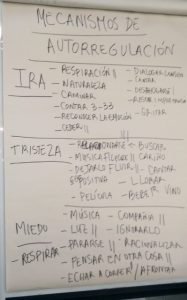 MECANISMOS DE
AUTORREGULACIÓN
IRA
- RESPIRACIÓN ||
- NATURALEZA
- CAMINAR
- CONTAR 3-33
- RECONOCER LA EMOCIÓN
- CEDER ||
- DIALOGAR
- CANTAR
- GRITAR
TRISTEZA
- BUSCAR
- MUSICA CARIÑO
- DEJARLO FLUIR
- CANTAR
POSITIVA
- LLORAR
- PELÍCULA
- BEBER VINO
MIEDO
- RESPIRAR
- MÚSICA
- COMPAÑIA ||
- LIFE ||
- IGNORARLO
- PARARSE ||
- RACIONALIZAR
- PENSAR EN OTRA COSA ||
- ECHAR A CORRER / AFRONTAR